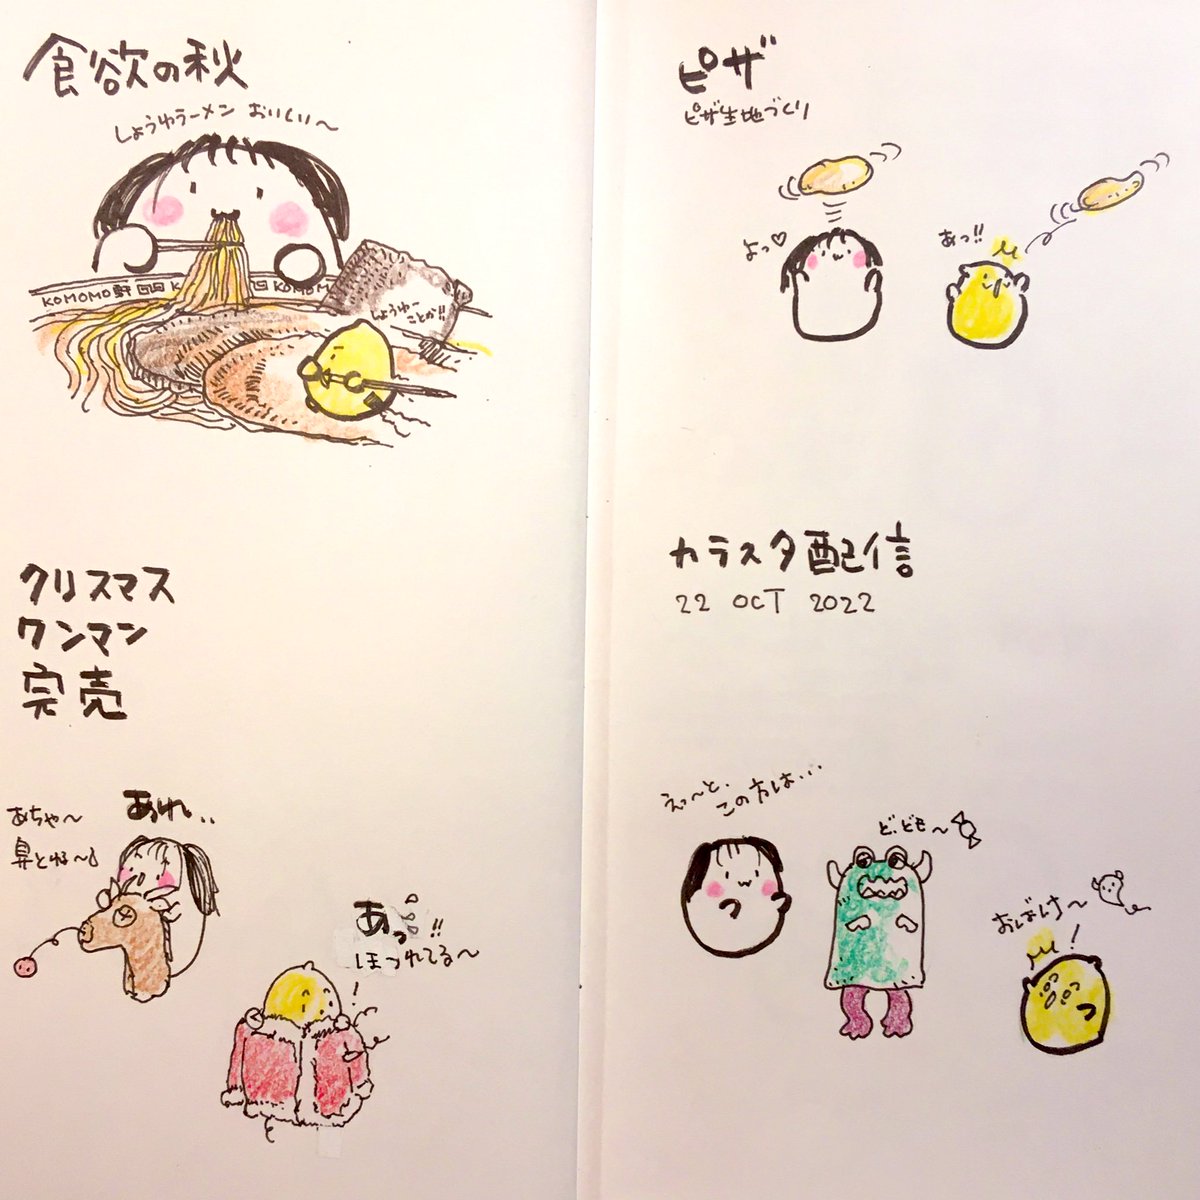 食欲の秋
しょうゆラーメン おいしい〜
KOMOMO軒
KOMOM
しょうゆー
ことか!!
クリスマス
ワンマン
完売
あれ、、
あちゃ〜
鼻とれる〜
あっ!!
ほつれてる〜
!
ピザ
ピザ生地づくり
よっ♡
あっ!!
カラスタ配信
22 OCT 2022
えっ〜と、
この方は・・・
ど、ども〜
おばけ〜
!